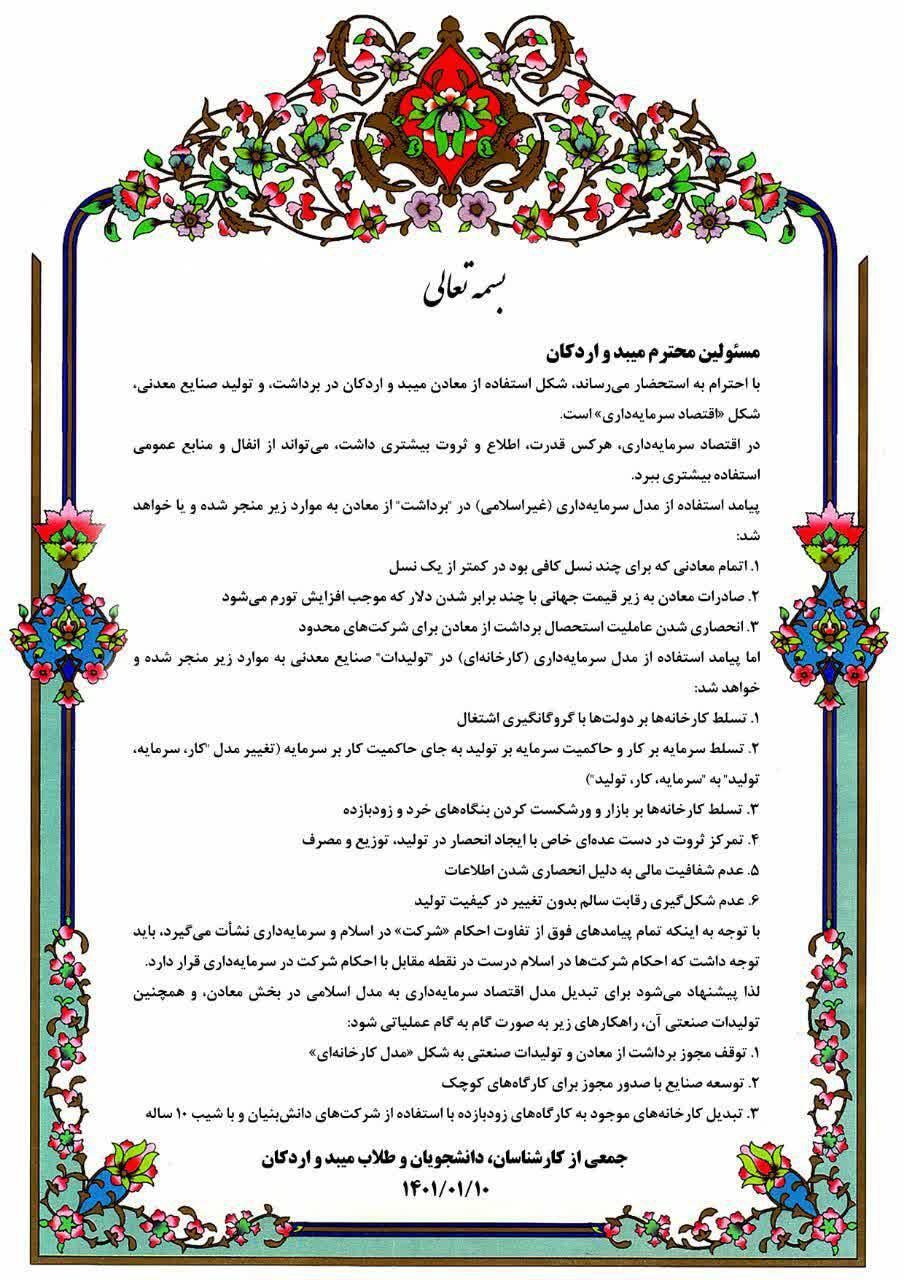 بسمه تعالی
مسئولین محترم میبد و اردکان
با احترام به استحضار می‌رساند، شکل استفاده از معادن میبد و اردکان در برداشت، و تولید صنایع معدنی،
شکل «اقتصاد سرمایه‌داری» است.
در اقتصاد سرمایه‌داری، هرکس قدرت، اطلاع و ثروت بیشتری داشت، می‌تواند از انفال و منابع عمومی
استفاده بیشتری ببرد.
پیامد استفاده از مدل سرمایه‌داری (غیراسلامی) در "برداشت" از معادن به موارد زیر منجر شده و یا خواهد
شد:
۱. اتمام معادنی که برای چند نسل کافی بود در کمتر از یک نسل
۲. صادرات معادن به زیر قیمت جهانی با چند برابر شدن دلار که موجب افزایش تورم می‌شود
۳. انحصاری شدن عاملیت استحصال برداشت از معادن برای شرکت‌های محدود
اما پیامد استفاده از مدل سرمایه‌داری (کارخانه‌ای) در "تولیدات" صنایع معدنی به موارد زیر منجر شده و
خواهد شد:
۱. تسلط کارخانه‌ها بر دولت‌ها با گروگانگیری اشتغال
۲. تسلط سرمایه بر کار و حاکمیت سرمایه بر تولید به جای حاکمیت کار بر سرمایه (تغییر مدل "کار، سرمایه،
تولید" به "سرمایه، کار، تولید")
۳. تسلط کارخانه‌ها بر بازار و ورشکست کردن بنگاه‌های خرد و زودبازده
۴. تمرکز ثروت در دست عده‌ای خاص با ایجاد انحصار در تولید، توزیع و مصرف
۵. عدم شفافیت مالی به دلیل انحصاری شدن اطلاعات
۶. عدم شکل‌گیری رقابت سالم بدون تغییر در کیفیت تولید
با توجه به اینکه تمام پیامدهای فوق از تفاوت احکام «شرکت» در اسلام و سرمایه‌داری نشأت می‌گیرد، باید
توجه داشت که احکام شرکت‌ها در اسلام درست در نقطه مقابل با احکام شرکت در سرمایه‌داری قرار دارد.
لذا پیشنهاد می‌شود برای تبدیل مدل اقتصاد سرمایه‌داری به مدل اسلامی در بخش معادن، و همچنین
تولیدات صنعتی آن، راهکارهای زیر به صورت گام به گام عملیاتی شود:
۱. توقف مجوز برداشت از معادن و تولیدات صنعتی به شکل «مدل کارخانه‌ای»
۲. توسعه صنایع با صدور مجوز برای کارگاه‌های کوچک
۳. تبدیل کارخانه‌های موجود به کارگاه‌های زودبازده با استفاده از شرکت‌های دانش‌بنیان و با شیب ۱۰ ساله
جمعی از کارشناسان، دانشجویان و طلاب میبد و اردکان
۱۴۰۱/۰۱/۱۰